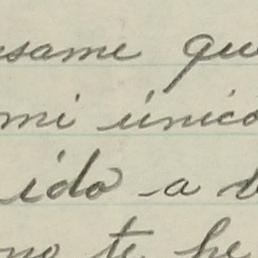 same qu
mi único
ido a
no te he